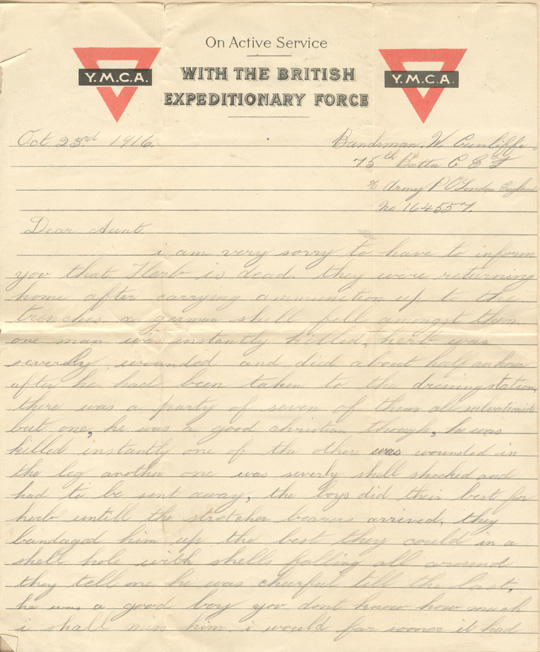 On Active Service
Y.M.C.A.
WITH THE BRITISH
Y.M.C.A.
EXPEDITIONARY FORCE
Oct 23rd 1916.
Bandsman, W Cunliffe.
75th Battn C E F
c/o Army P O London England
No 164557.
Dear Aunt.
i am very sorry to have to inform
you that Herb is dead. they were returning
home after carrying ammunition up to the
trenches, a german shell fell amongst them
one man was instantly killed, herb was
severley wounded and died about half an hour
after he had been taken to the dressing station,
there was a party of seven of them all salvationists
but one, he was a good christian though, he was
killed instantly one of the others was wounded in
the leg another one was severly shell shocked and
had to be sent away, the boys did their best for
herb untill the stretcher bearers arrived, they
bandaged him up the best they could in a
shell hole with shells falling all around
they tell me he was cheerful till the last,
he was a good boy you dont know how much
i shall miss him. i would far sooner it had